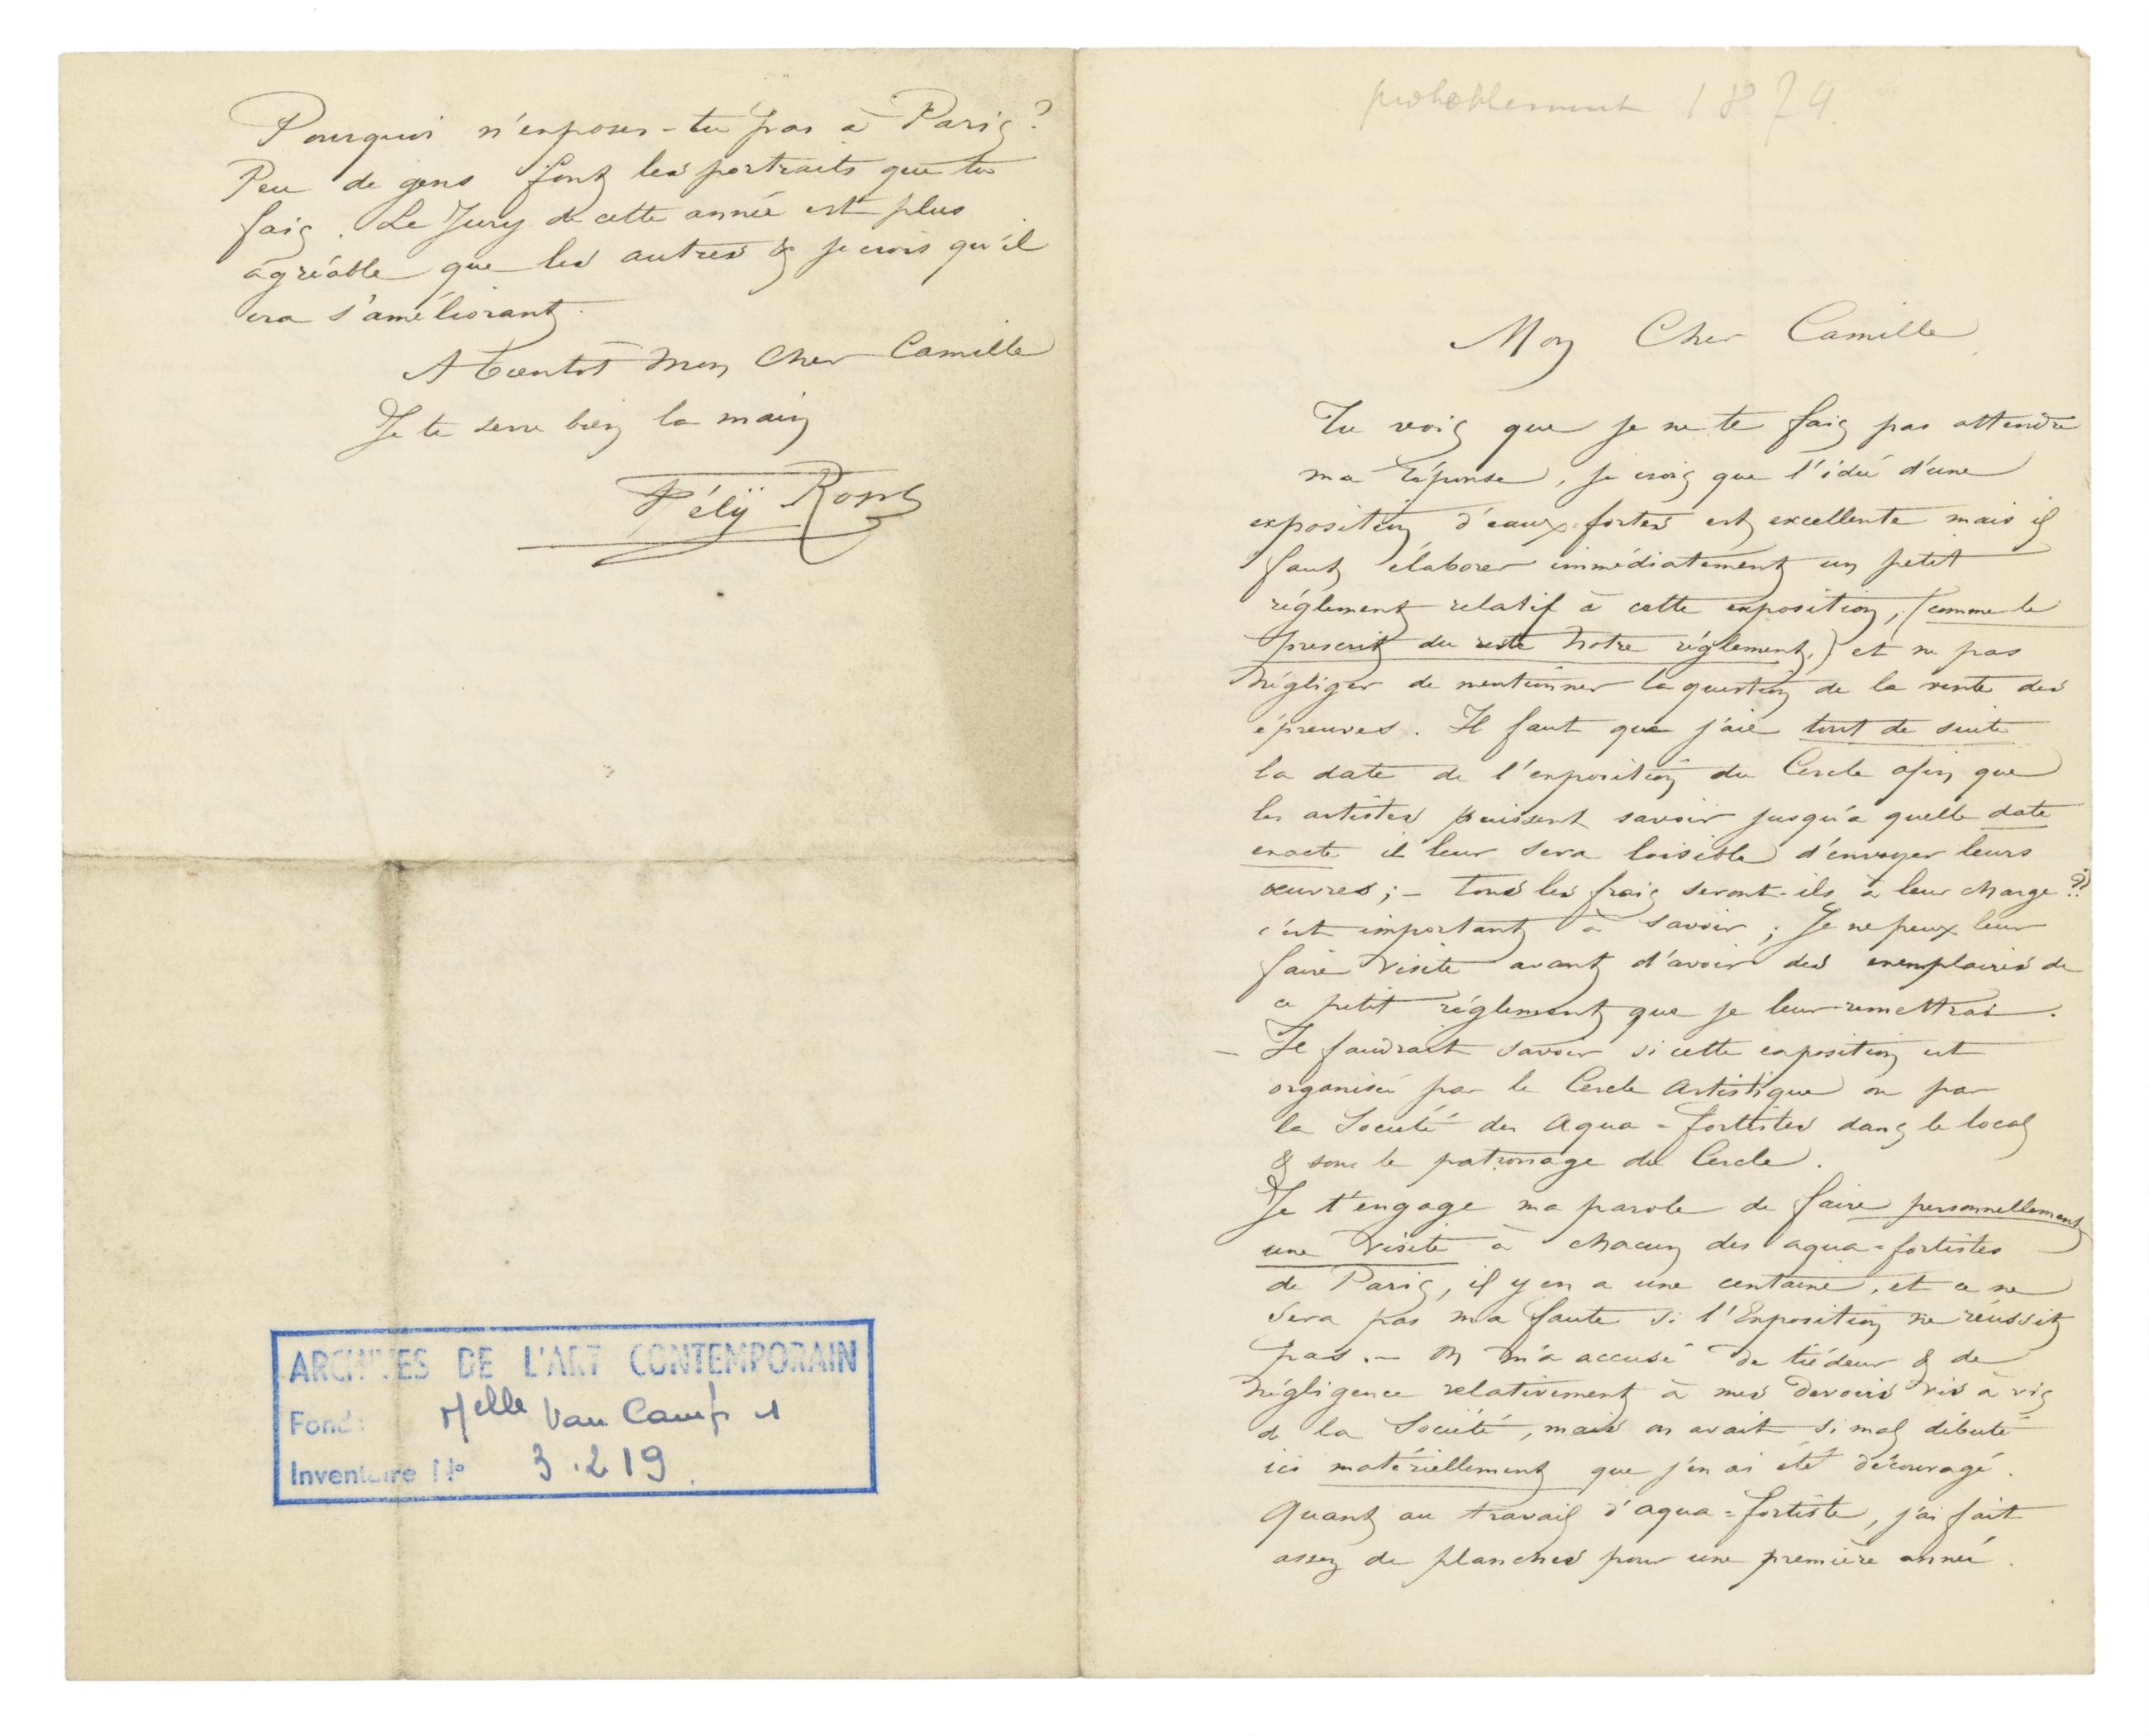 probablement 1874.
Mon Cher Camille
Tu vois que je ne te fais pas attendre
ma réponse, je crois que l'idée d'une
exposition d'eaux-fortes est excellente mais il
faut élaborer immédiatement un petit
réglement relatif à cette exposition, (comme le
prescrit du reste notre réglement,) et ne pas
négliger de mentionner la question de la vente des
épreuves. Il faut que j'aie tout de suite
la date de l'exposition du Cercle afin que
les artistes puissent savoir jusqu'à quelle date
exacte il leur sera loisible d'envoyer leurs
œuvres ; – tous les frais seront-ils à leur charge ??
c'est important à savoir ; Je ne peux leur
faire visite avant d'avoir des exemplaires de
ce petit réglement que je leur remettrai.
– Il faudrait savoir si cette exposition est
organisée par le Cercle Artistique ou par
la Société des Aqua-fortistes dans le local
& sous le patronage du Cercle.
Je t'engage ma parole de faire personnellement
une visite à chacun des aqua-fortistes
de Paris, il y en a une centaine, et ce ne
sera pas ma faute si l'Exposition ne réussit
pas. – On m'a accusé de tiédeur & de
négligence relativement à mes devoirs vis à vis
de la Société, mais on avait si mal débuté
ici matériellement que j'en ai été découragé.
Quant au travail d'aqua-fortiste, j'ai fait
assez de planches pour une première année.
Pourquoi n'exposes-tu pas à Paris ?
Peu de gens font les portraits que tu
fais. Le Jury de cette année est plus
agréable que les autres & je crois qu'il
ira s'améliorant.
A bientôt Mon Cher Camille
Je te serre bien la main
Félÿ Rops
ARCHIVES DE L'ART CONTEMPORAIN
Fonds: Melle Van Camp
Inventaire N° 3.219.